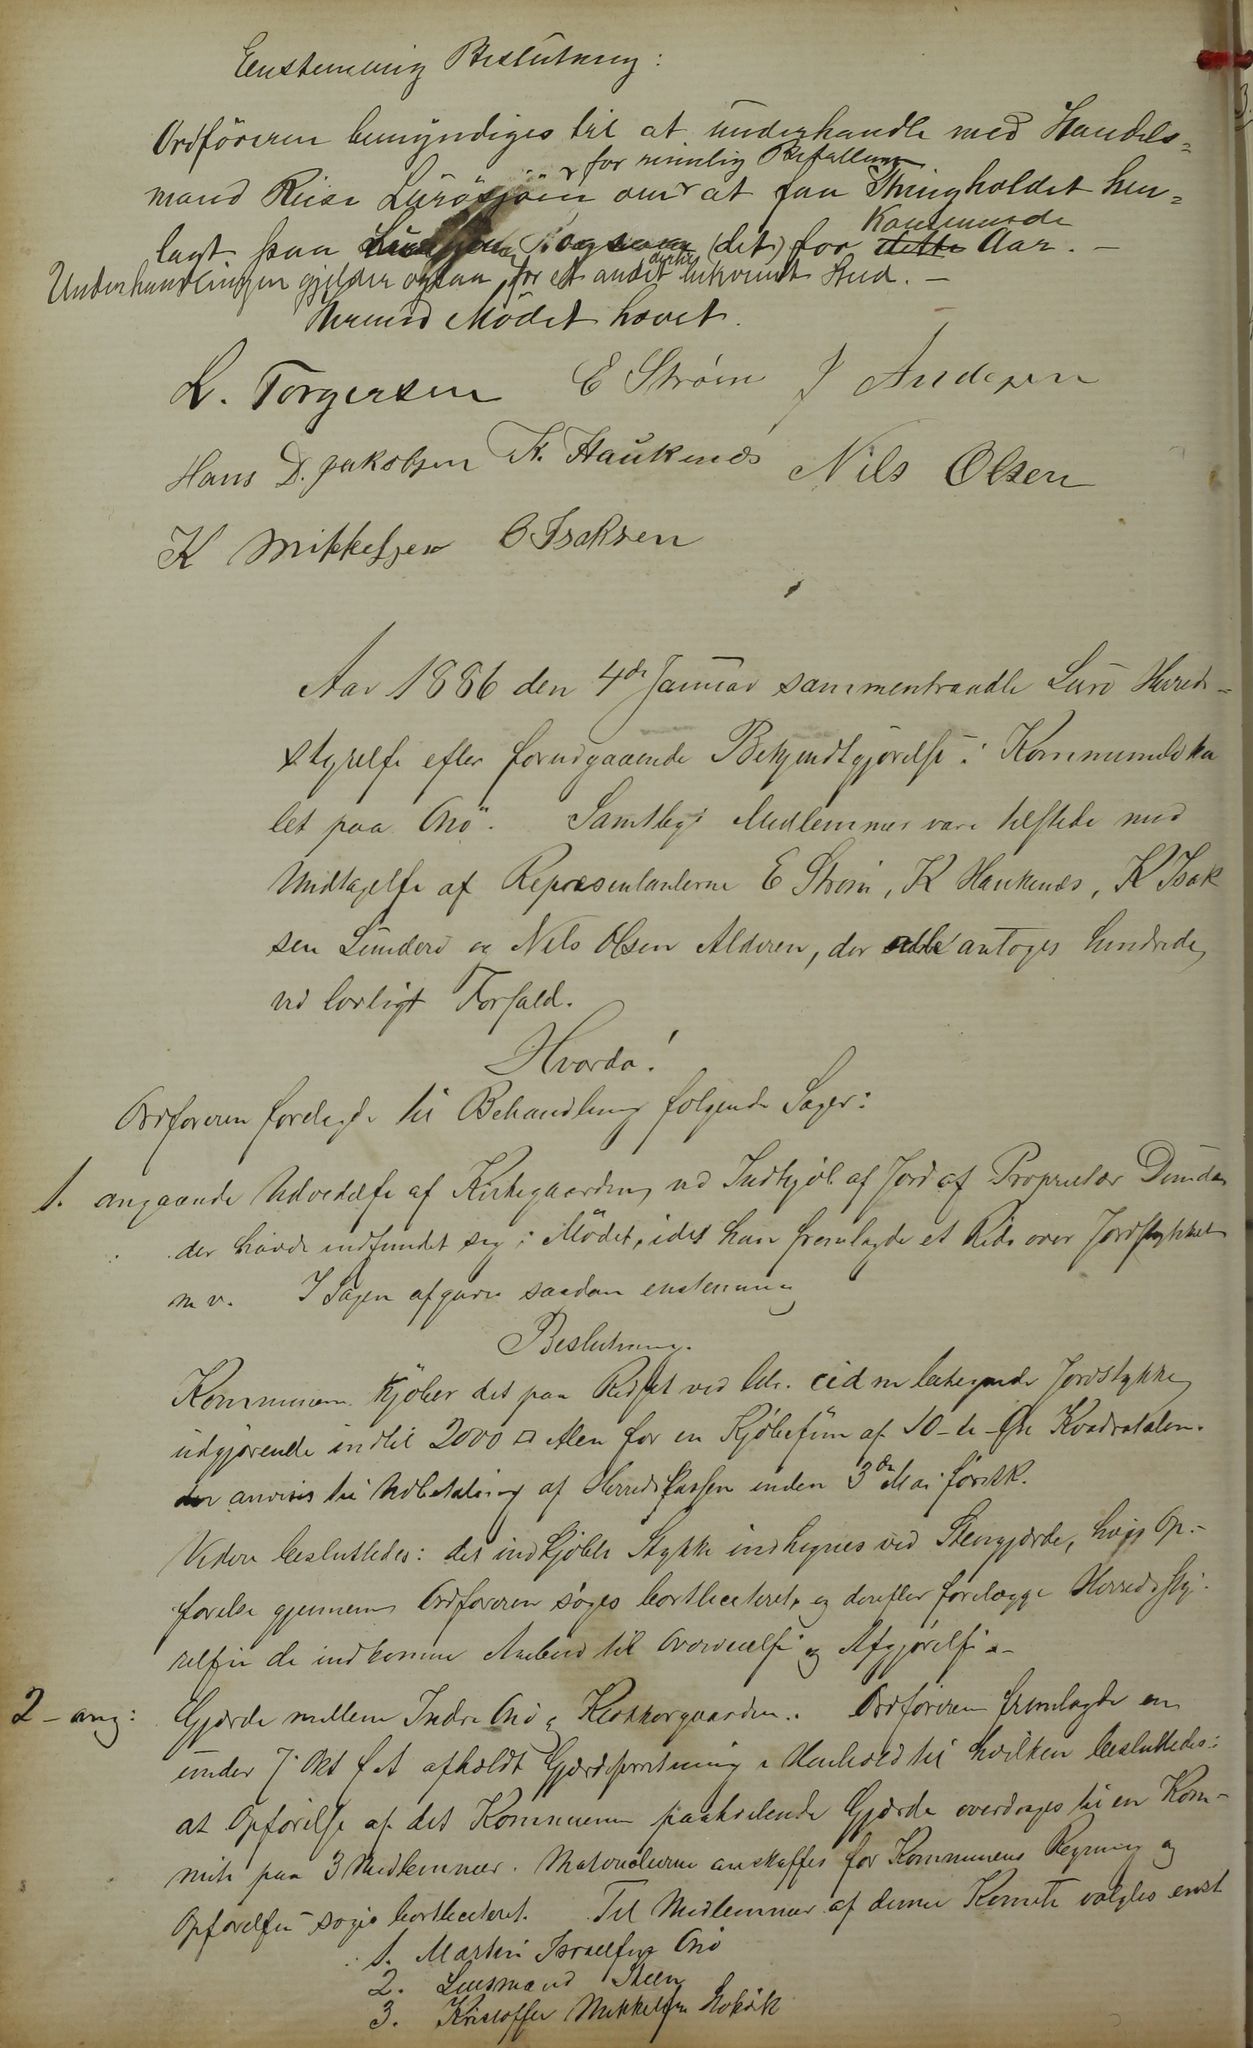 Eenstemmig Beslutning:
Ordföreren bemyndiges til at underhandle med Handels-
for rimelig Betaling
mand Riise Lurösjöen om at faa Thingholdet hen-
Kommende
lagt paa (det) for dette Aar. -
Underhandlingen gjelder ogsaa for et andet dertil bekvemt Sted. -
Hermed Mödet hævet.
L. Torgersen E Strøm J Andersen
Hans D. Jakobsen K. Haukenæs Nils Olsen
K Mikkelsen O Isaksen
Aar 1886 den 4de Januar sammentraadte Lurö Herreds-
styrelse efter forudgaaende Bekjendtgjörelse i Kommuneloka
let paa Onö. Samtlige Medlemmer vare tilstede med
Undtagelse af Repræsentanterne E Strøm, K Haukenæs, K Isak
sen Sunderö og Nils Olsen Alderen, der alle antoges hindrede
ved lovligt Forfald.
Hvorda!
Ordföreren forelagde til Behandling følgende Sager:
1. angaaende Udvidelse af Kirkegaarden ved Indkjöb af Jord af Proprietær Dundas
der havde indfundet sig i Mödet, idet han fremlagde et Rids over Jordstykket
m v. I Sagen afgaves saadan enstemmig
Beslutning.
Kommunen kjöber det paa Ridset ved Litr. betegnede Jordstykke
udgjörende indtil 2000 □ Alen for en Kjöbesum af 10 - ti - Øre Kvadratalen.
der anvises til Udbetaling af Herredskassen inden 3die Mai förstk.
Videre besluttedes: det indkjöbte Stykke indhegnes ved Stengjærde, hvis Op-
förelse gjennem Ordföreren söges bortliciteret, og derefter forelægge Herredssty-
relsen de indkomne Anbud til Overveielse og Afgjörelse. -
2 - ang: Gjærde mellem Indre Onö og Klokkergaarden. Ordföreren fremlagde en
under 7 Okt f A afholdt Gjærdeforretning i Henhold til hvilken besluttedes:
at Opförelse af det Kommunen paahvilende Gjærde overdrages til en Kom-
mite paa 3 Medlemmer. Materialierne anskaffes for Kommunens Regning og
Opförelsen söges bortliciteret. Til Medlemmer af denne Komite valgtes enst
1. Martin Israelsen Onö
2. Lensmand Steen
3. Kristoffer Mikkelsen